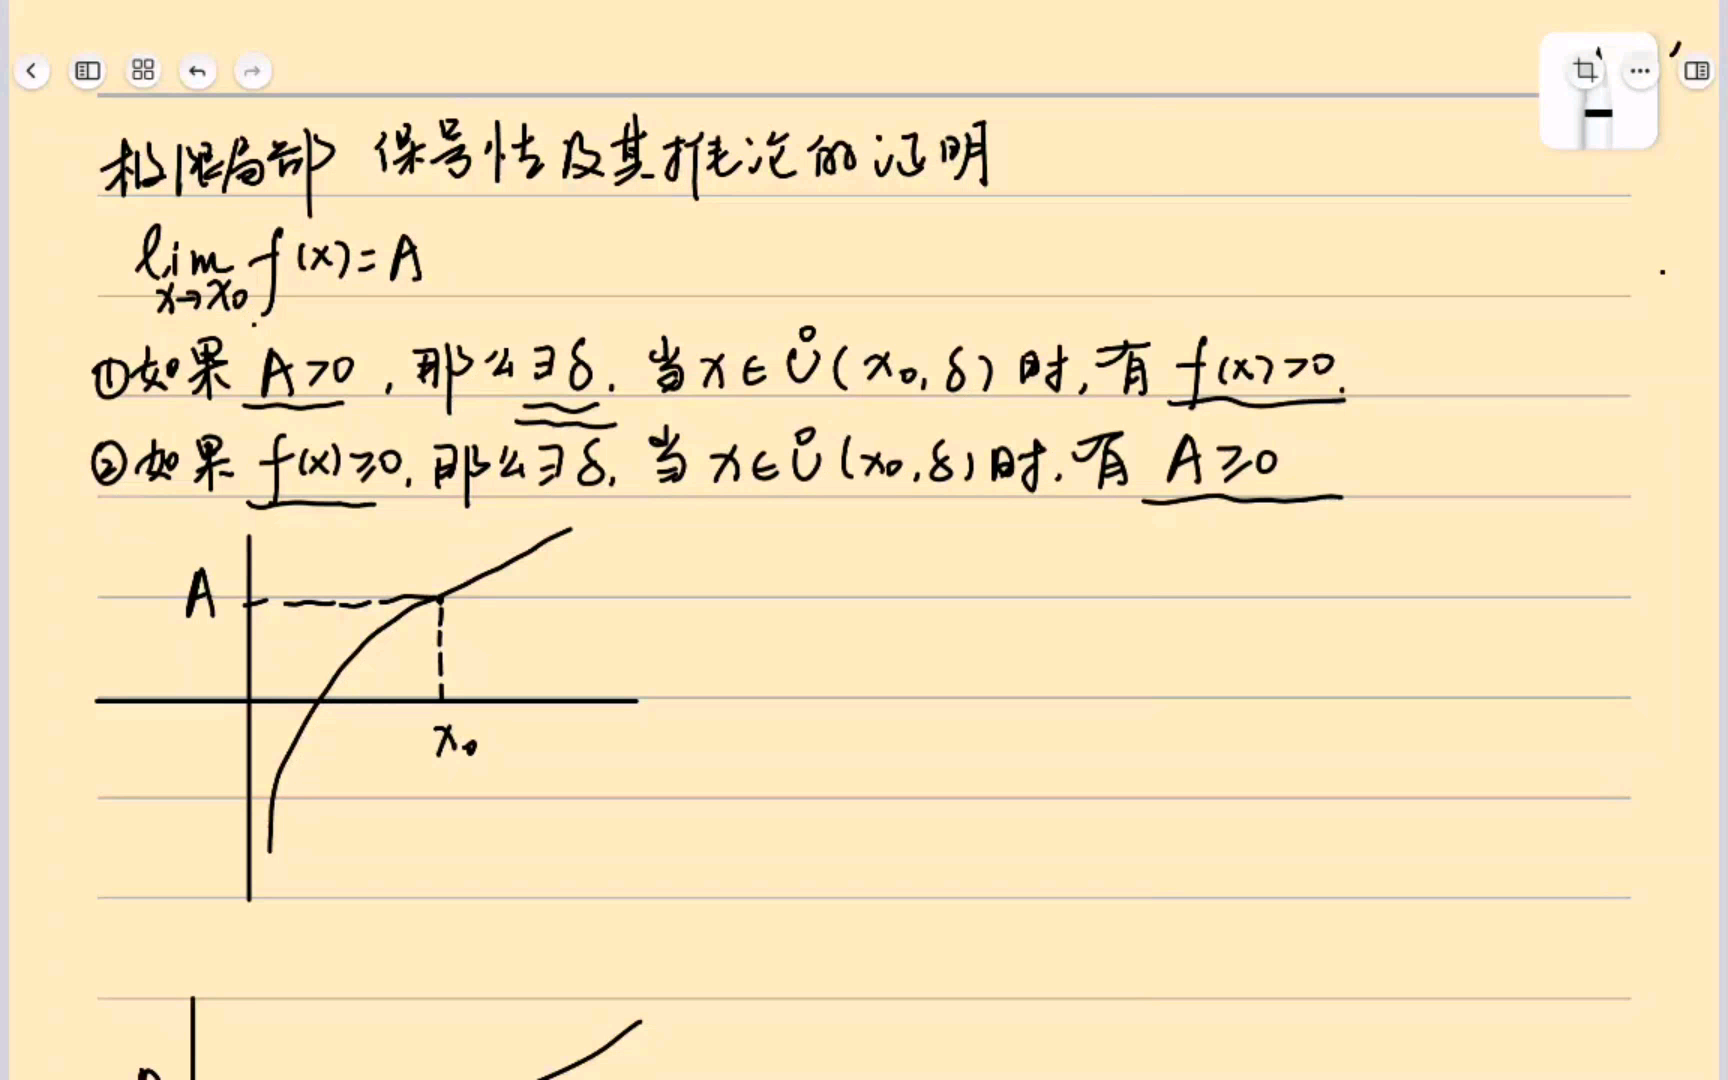 极限局部 保号性及其推论的证明
lim f(x)=A
x→x₀
①如果 A>0,那么∃δ,当x∈Ů(x₀,δ)时,有 f(x)>0.
②如果 f(x)≥0,那么∃δ,当x∈Ů(x₀,δ)时,有 A≥0
A
x₀